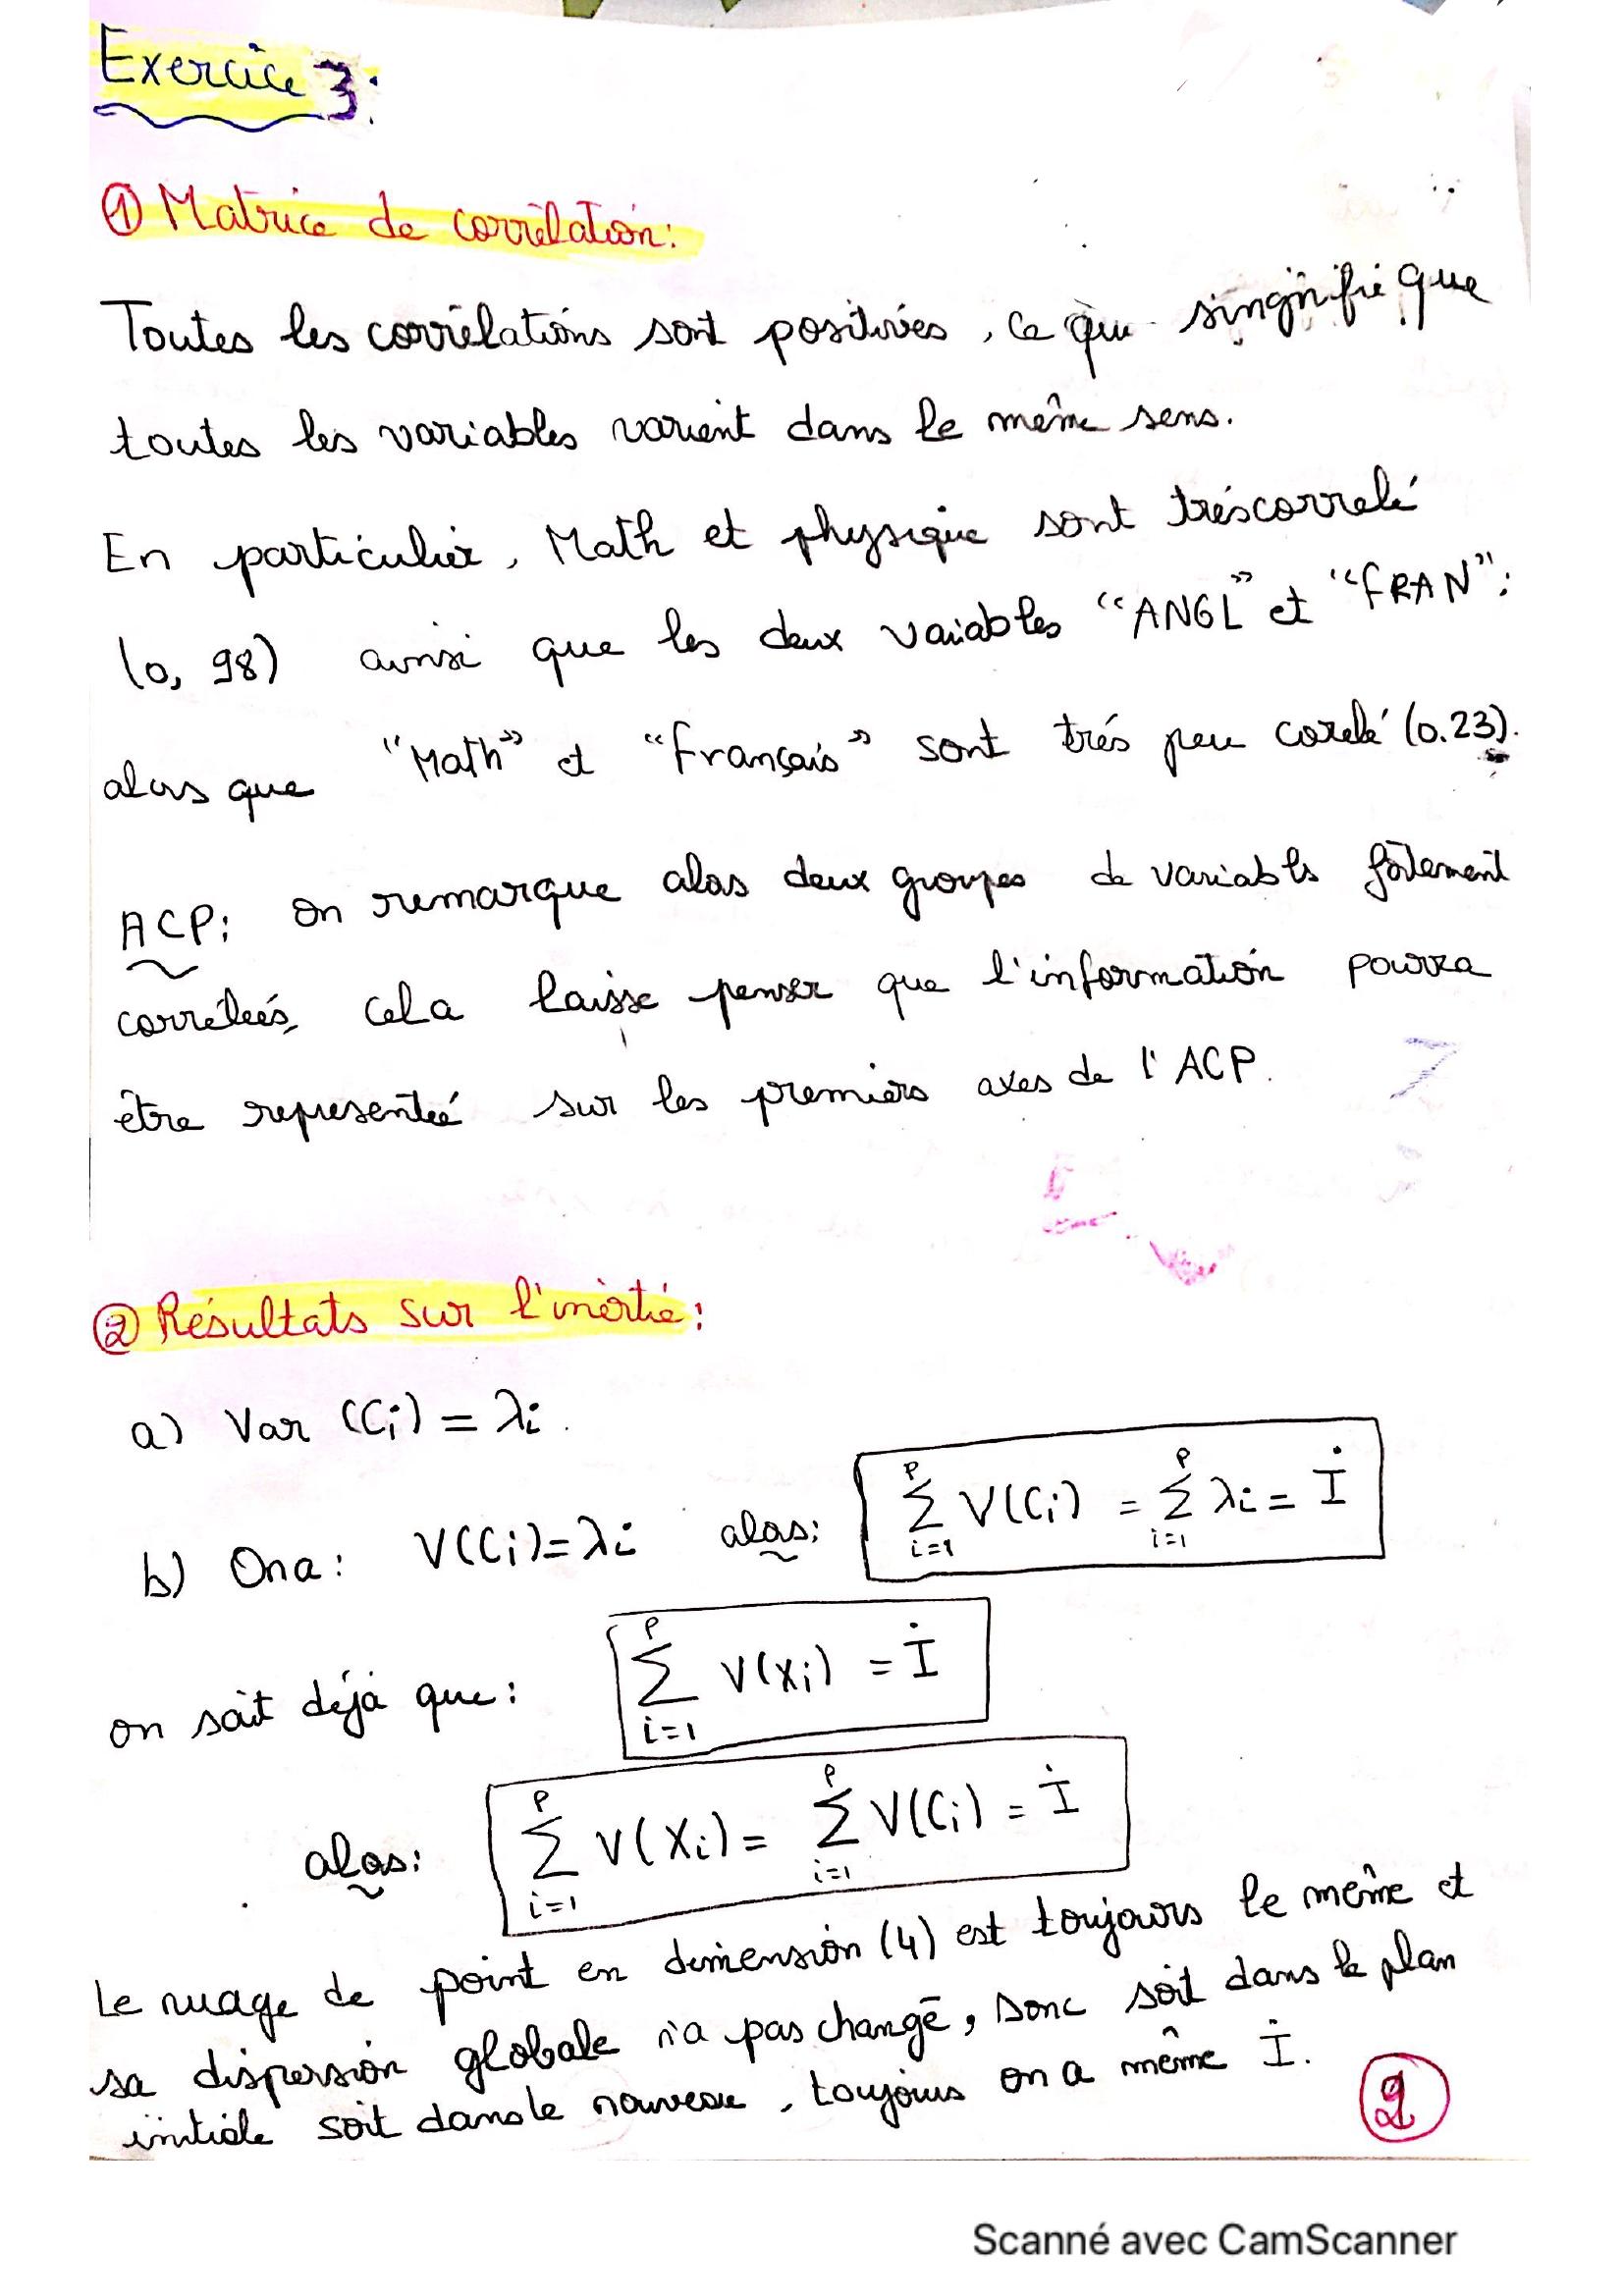 Exercice 3:
① Matrice de corrélation:
Toutes les corrélations sont positives, ce qui singnifie que
toutes les variables varient dans le même sens.
En particulier, Math et physique sont trés correlé
(0, 98) ainsi que les deux variables "ANGL" et "FRAN";
alors que "Math" et "Français" sont trés peu corelé (0.23).
ACP: on remarque alos deux groupes de variables fortement
corrélées, cela laisse penser que l'information pourra
être representée sur les premiers axes de l'ACP.
② Résultats sur l'inertie:
a) Var (Ci) = λi.
b) On a: V(Ci)=λi alos: ∑_{i=1}^{P} V(Ci) = ∑_{i=1}^{P} λi = I
on sait déjà que: ∑_{i=1}^{P} V(Xi) = I
alos: ∑_{i=1}^{P} V(Xi) = ∑_{i=1}^{P} V(Ci) = I
Le nuage de point en dimension (4) est toujours le même et
sa dispersion globale n'a pas changé, Donc soit dans le plan
initiale soit dans le nouveau, toujours on a même I.
2
Scanné avec CamScanner